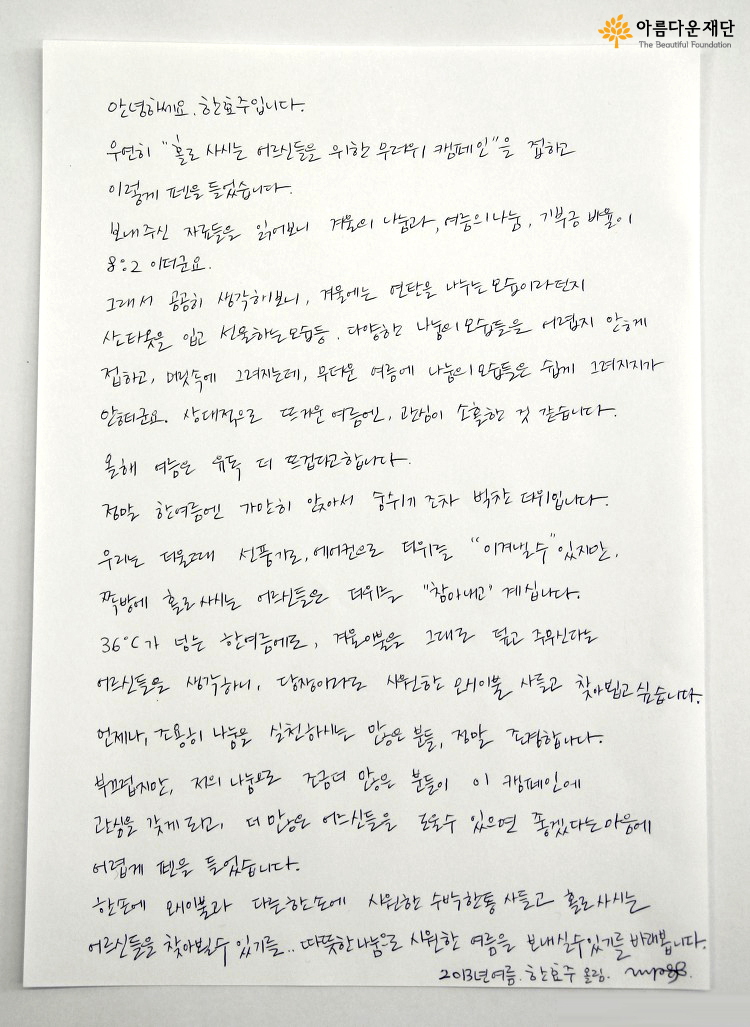 아름다운재단
The Beautiful Foundation
안녕하세요. 한효주입니다.
우연히 "홀로 사시는 어르신들을 위한 무더위 캠페인"을 접하고
이렇게 펜을 들었습니다.
보내주신 자료들을 읽어보니 겨울의 나눔과, 여름의 나눔, 기부금 비율이
8:2 이더군요.
그래서 곰곰히 생각해보니, 겨울에는 연탄을 나누는 모습이라던지
산타옷을 입고 선물하는 모습등, 다양한 나눔의 모습들을 어렵지 않게
접하고, 머릿속에 그려지는데, 무더운 여름에 나눔의 모습들은 쉽게 그려지지가
않더군요. 상대적으로 뜨거운 여름엔, 관심이 소홀한 것 같습니다.
올해 여름은 유독 더 뜨겁다고합니다.
정말 한여름엔 가만히 앉아서 숨쉬기 조차 벅찬 더위입니다.
우리는 더울때 선풍기로, 에어컨으로 더위를 "이겨낼수" 있지만,
쪽방에 홀로 사시는 어르신들은 더위를 "참아내고" 계십니다.
36°C가 넘는 한여름에도, 겨울이불을 그대로 덮고 주무신다는
어르신들을 생각하니, 당장이라도 시원한 모시이불 사들고 찾아뵙고 싶습니다.
언제나, 조용히 나눔을 실천하시는 많은 분들, 정말 존경합니다.
부끄럽지만, 저의 나눔으로 조금더 많은 분들이 이 캠페인에
관심을 갖게 되고, 더 많은 어르신들을 도울수 있으면 좋겠다는 마음에
어렵게 펜을 들었습니다.
한손에 모시이불과 다른한손에 시원한 수박한통 사들고 홀로 사시는
어르신들을 찾아뵐수 있기를.. 따뜻한 나눔으로 시원한 여름을 보내실수있기를 바래봅니다.
2013년 여름. 한효주 올림.